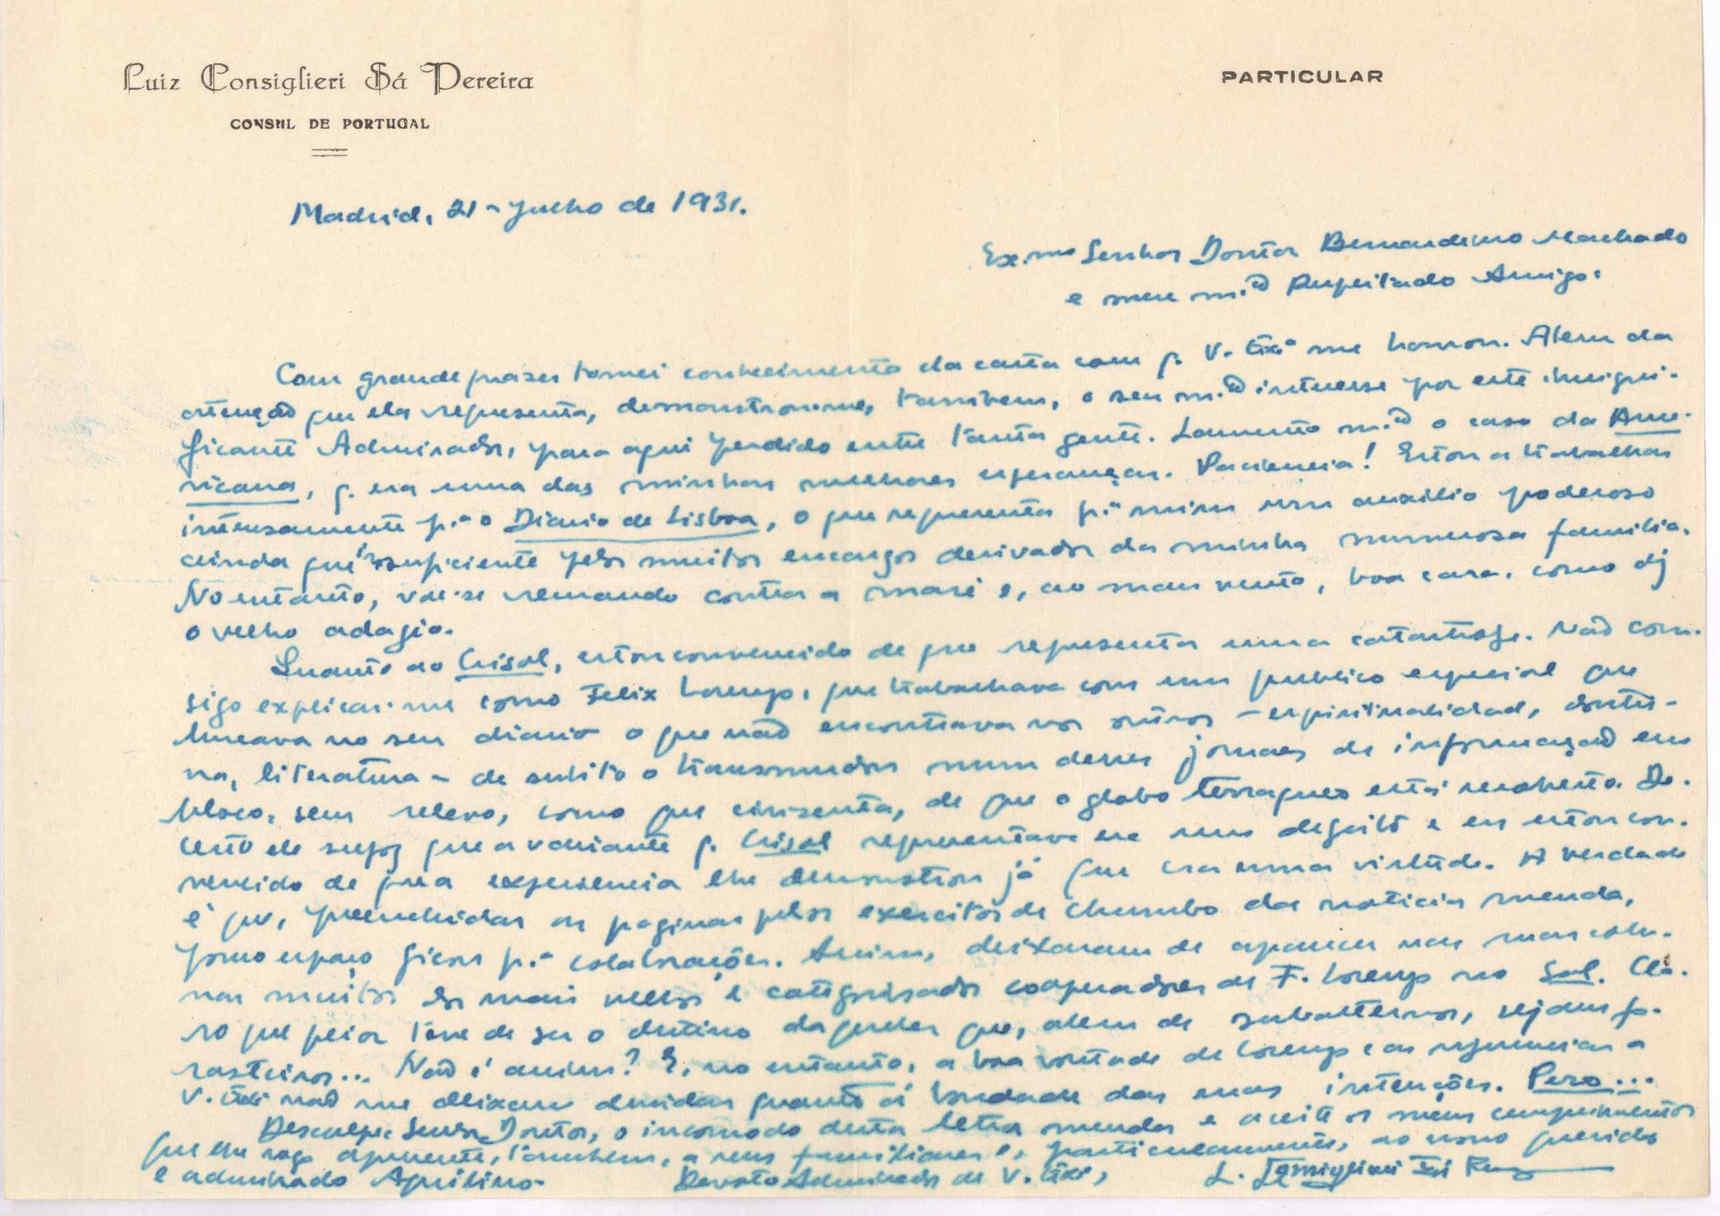 Luiz Consiglieri Sá Pereira
CONSUL DE PORTUGAL
PARTICULAR
Madrid, 21 - Julho de 1931.
Ex.mo Senhor Doutor Bernardino Machado
e meu m.to Respeitado Amigo:
Com grande prazer tomei conhecimento da carta com q. V. Exª me honrou. Alem da
atenção que ela representa, demonstrou-me, tambem, o seu m.to interesse por este insigni-
ficante Admirador, para aqui perdido entre tanta gente. Lamento m.to o caso da Ame-
ricana, q. era uma das minhas melhores esperanças. Paciencia! Estou a trabalhar
intensamente p.ª o Diario de Lisboa, o que representa p.ª mim um auxilio poderoso
ainda que insuficiente pelos muitos encargos derivados da minha numerosa familia.
No entanto, vae-se remando contra a maré e, ao mau vento, boa cara, como diz
o velho adagio.
Quanto ao Crisol, estou convencido de que representa uma catastrofe. Não con-
sigo explicar-me como Felix Lorenzo, que trabalhava com um publico especial que
buscava no seu diario o que não encontrava nos outros - espiritualidad, doutri-
na, literatura - de subito o transmudou num desses jornaes de informação em
bloco, sem relevo, como que cinzenta, de que o globo terraqueo está recoberto. De-
certo ele supoz que a variante q. Crisol representava era um defeito e eu estou con-
vencido de que a experiencia lhe demonstrou já que era uma virtude. A verdade
é que, preenchidas as paginas pelos exercitos de chumbo da noticia menda,
pouco espaço ficou p.ª colaborações. Assim, deixaram de aparecer nas suas colu-
nas muitos dos mais velhos e categorisados cooperadores de F. Lorenzo no Sol. Cla-
ro que peior teve de ser o destino daqueles que, alem de subalternos, sejam fo-
rasteiros... Não é assim? E, no entanto, a boa vontade de Lorenzo e as referencias a
V. Exª não me deixam duvidas quanto á bondade das suas intenções. Pero...
Desculpe, Senhor Doutor, o incomodo desta letra menda e aceite os meus cumprimentos
que eu rogo apresente, tambem, a seus familiares e, particularmente, ao nosso querido
e admirado Aquilino.
Devoto Admirador de V. Exª,
L. Consiglieri Sá Pereira